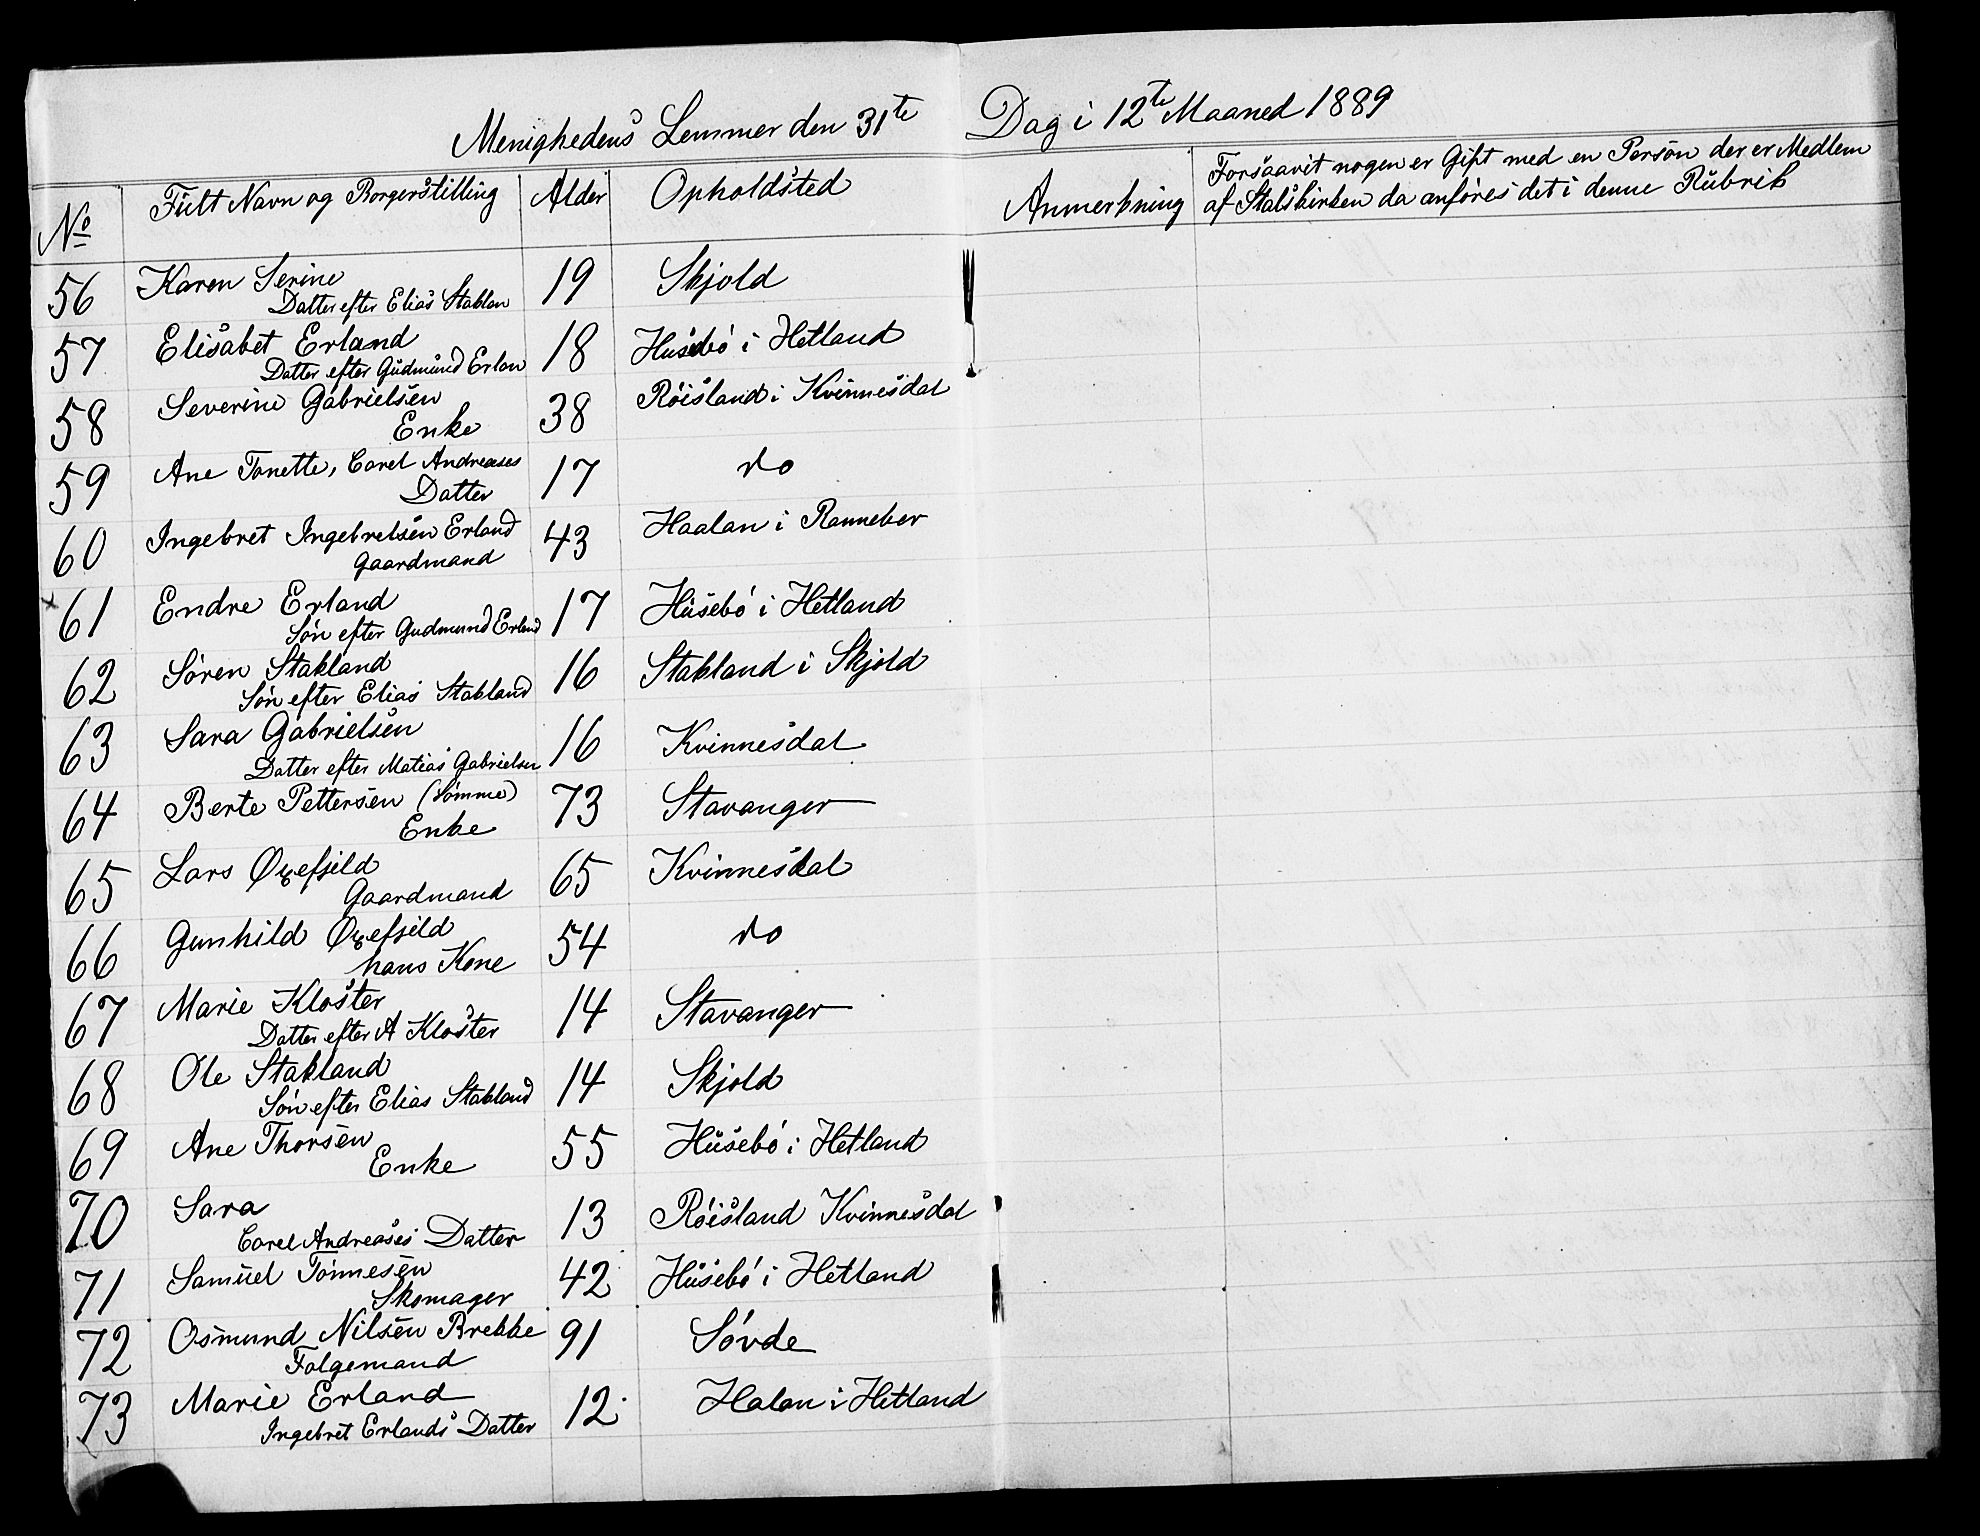 Menighedens Lemmer den 31te Dag i 12te Maaned 1889
No Fült Navn og Borgerstilling Alder Opholdsted Anmerkning Forsaavit nogen er Gift med en Person der er Medlem
af Statskirken da anföres det i denne Rübrik
56 Karen Serine 19 Skjold
Datter efter Elias Staklan
57 Elisabet Erland 18 Husebö i Hetland
Datter efter Güdmünd Erlan
58 Severine Gabrielsen 38 Röisland i Kvinnesdal
Enke
59 Ane Tonette, Carel Andreases 17 do
Datter
60 Ingebret Ingebretsen Erland 43 Haalan i Ranneber
Gaardmand
x 61 Endre Erland 17 Hüsebö i Hetland
Sön efter Gudmund Erland
62 Sören Stakland 16 Stakland i Skjold
Sön efter Elias Stakland
63 Sara Gabrielsen 16 Kvinnesdal
Datter efter Matias Gabrielsen
64 Berte Pettersen (Sömme) 73 Stavanger
Enke
65 Lars Øxefjeld 65 Kvinnesdal
Gaardmand
66 Gunhild Øxefjeld 54 do
hans Kone
67 Marie Kloster 14 Stavanger
Datter efter A Kloster
68 Ole Stakland 14 Skjold
Sön efter Elias Stakland
69 Ane Thorsen 55 Hüsebö i Hetland
Enke
70 Sara 13 Röisland Kvinnesdal
Carel Andreases Datter
71 Samüel Tönnesen 42 Hüsebö i Hetland
Skomager
72 Osmund Nilsen Brekke 91 Sövde
Folgemand
73 Marie Erland 12 Halan i Hetland
Ingebret Erlands Datter